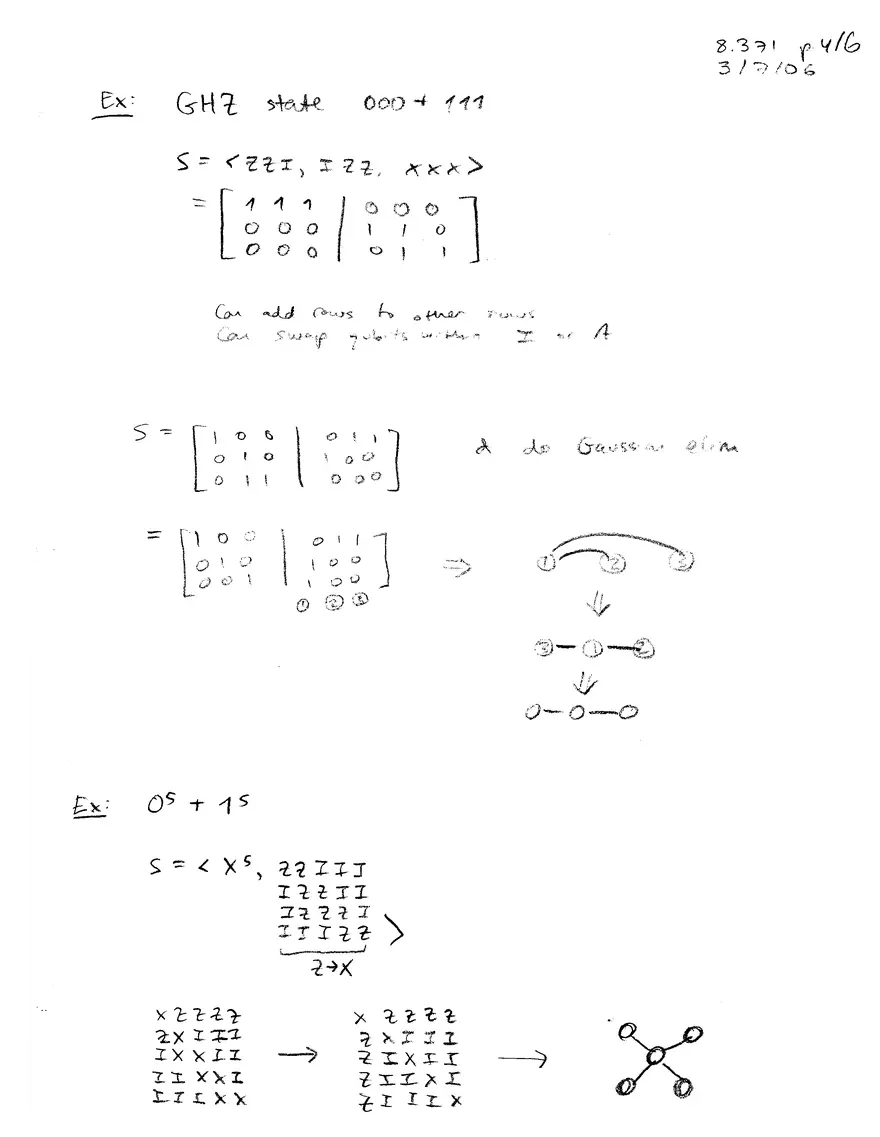 8.371 p 4/6
3/7/06
Ex: GHZ state 000 + 111
S = < ZZI, IZZ, XXX >
= [ 1 1 1 | 0 0 0
0 0 0 | 1 1 0
0 0 0 | 0 1 1 ]
Can add rows to other rows
Can swap qubits within I or A
S = [ 1 0 0 | 0 1 1
0 1 0 | 1 0 0
0 1 1 | 0 0 0 ]
& do Gaussian elim
= [ 1 0 0 | 0 1 1
0 1 0 | 1 0 0
0 0 1 | 1 0 0 ]
① ② ③
⇒ ① ② ③
⇓
③ — ① — ②
⇓
O — O — O
Ex: 0⁵ + 1⁵
S = < X⁵, ZZIII
IZZII
IZZZI
IIIZZ >
Z→X
XZZZZ → XZZZZ →
ZXIII ZXIII
IXXII ZIXII
IIXXI ZIIXI
IIIXX ZIIIX